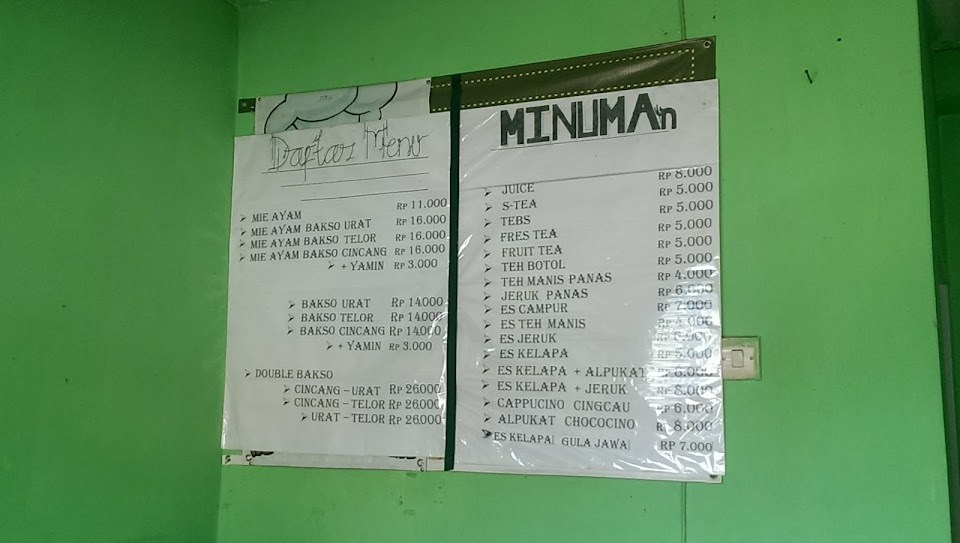 Daftar Menu
MIE AYAM RP 11.000
MIE AYAM BAKSO URAT RP 16.000
MIE AYAM BAKSO TELOR RP 16.000
MIE AYAM BAKSO CINCANG RP 16.000
+ YAMIN RP 3.000
BAKSO URAT RP 14.000
BAKSO TELOR RP 14.000
BAKSO CINCANG RP 14.000
+ YAMIN RP 3.000
DOUBLE BAKSO
CINCANG – URAT RP 26.000
CINCANG – TELOR RP 26.000
URAT – TELOR RP 26.000
MINUMAn
JUICE RP 8.000
S-TEA RP 5.000
TEBS RP 5.000
FRES TEA RP 5.000
FRUIT TEA RP 5.000
TEH BOTOL RP 5.000
TEH MANIS PANAS RP 4.000
JERUK PANAS RP 6.000
ES CAMPUR RP 7.000
ES TEH MANIS
ES JERUK
ES KELAPA RP 5.000
ES KELAPA + ALPUKAT
ES KELAPA + JERUK RP 8.000
CAPPUCINO CINGCAU RP 6.000
ALPUKAT CHOCOCINO RP 8.000
ES KELAPA GULA JAWA RP 7.000